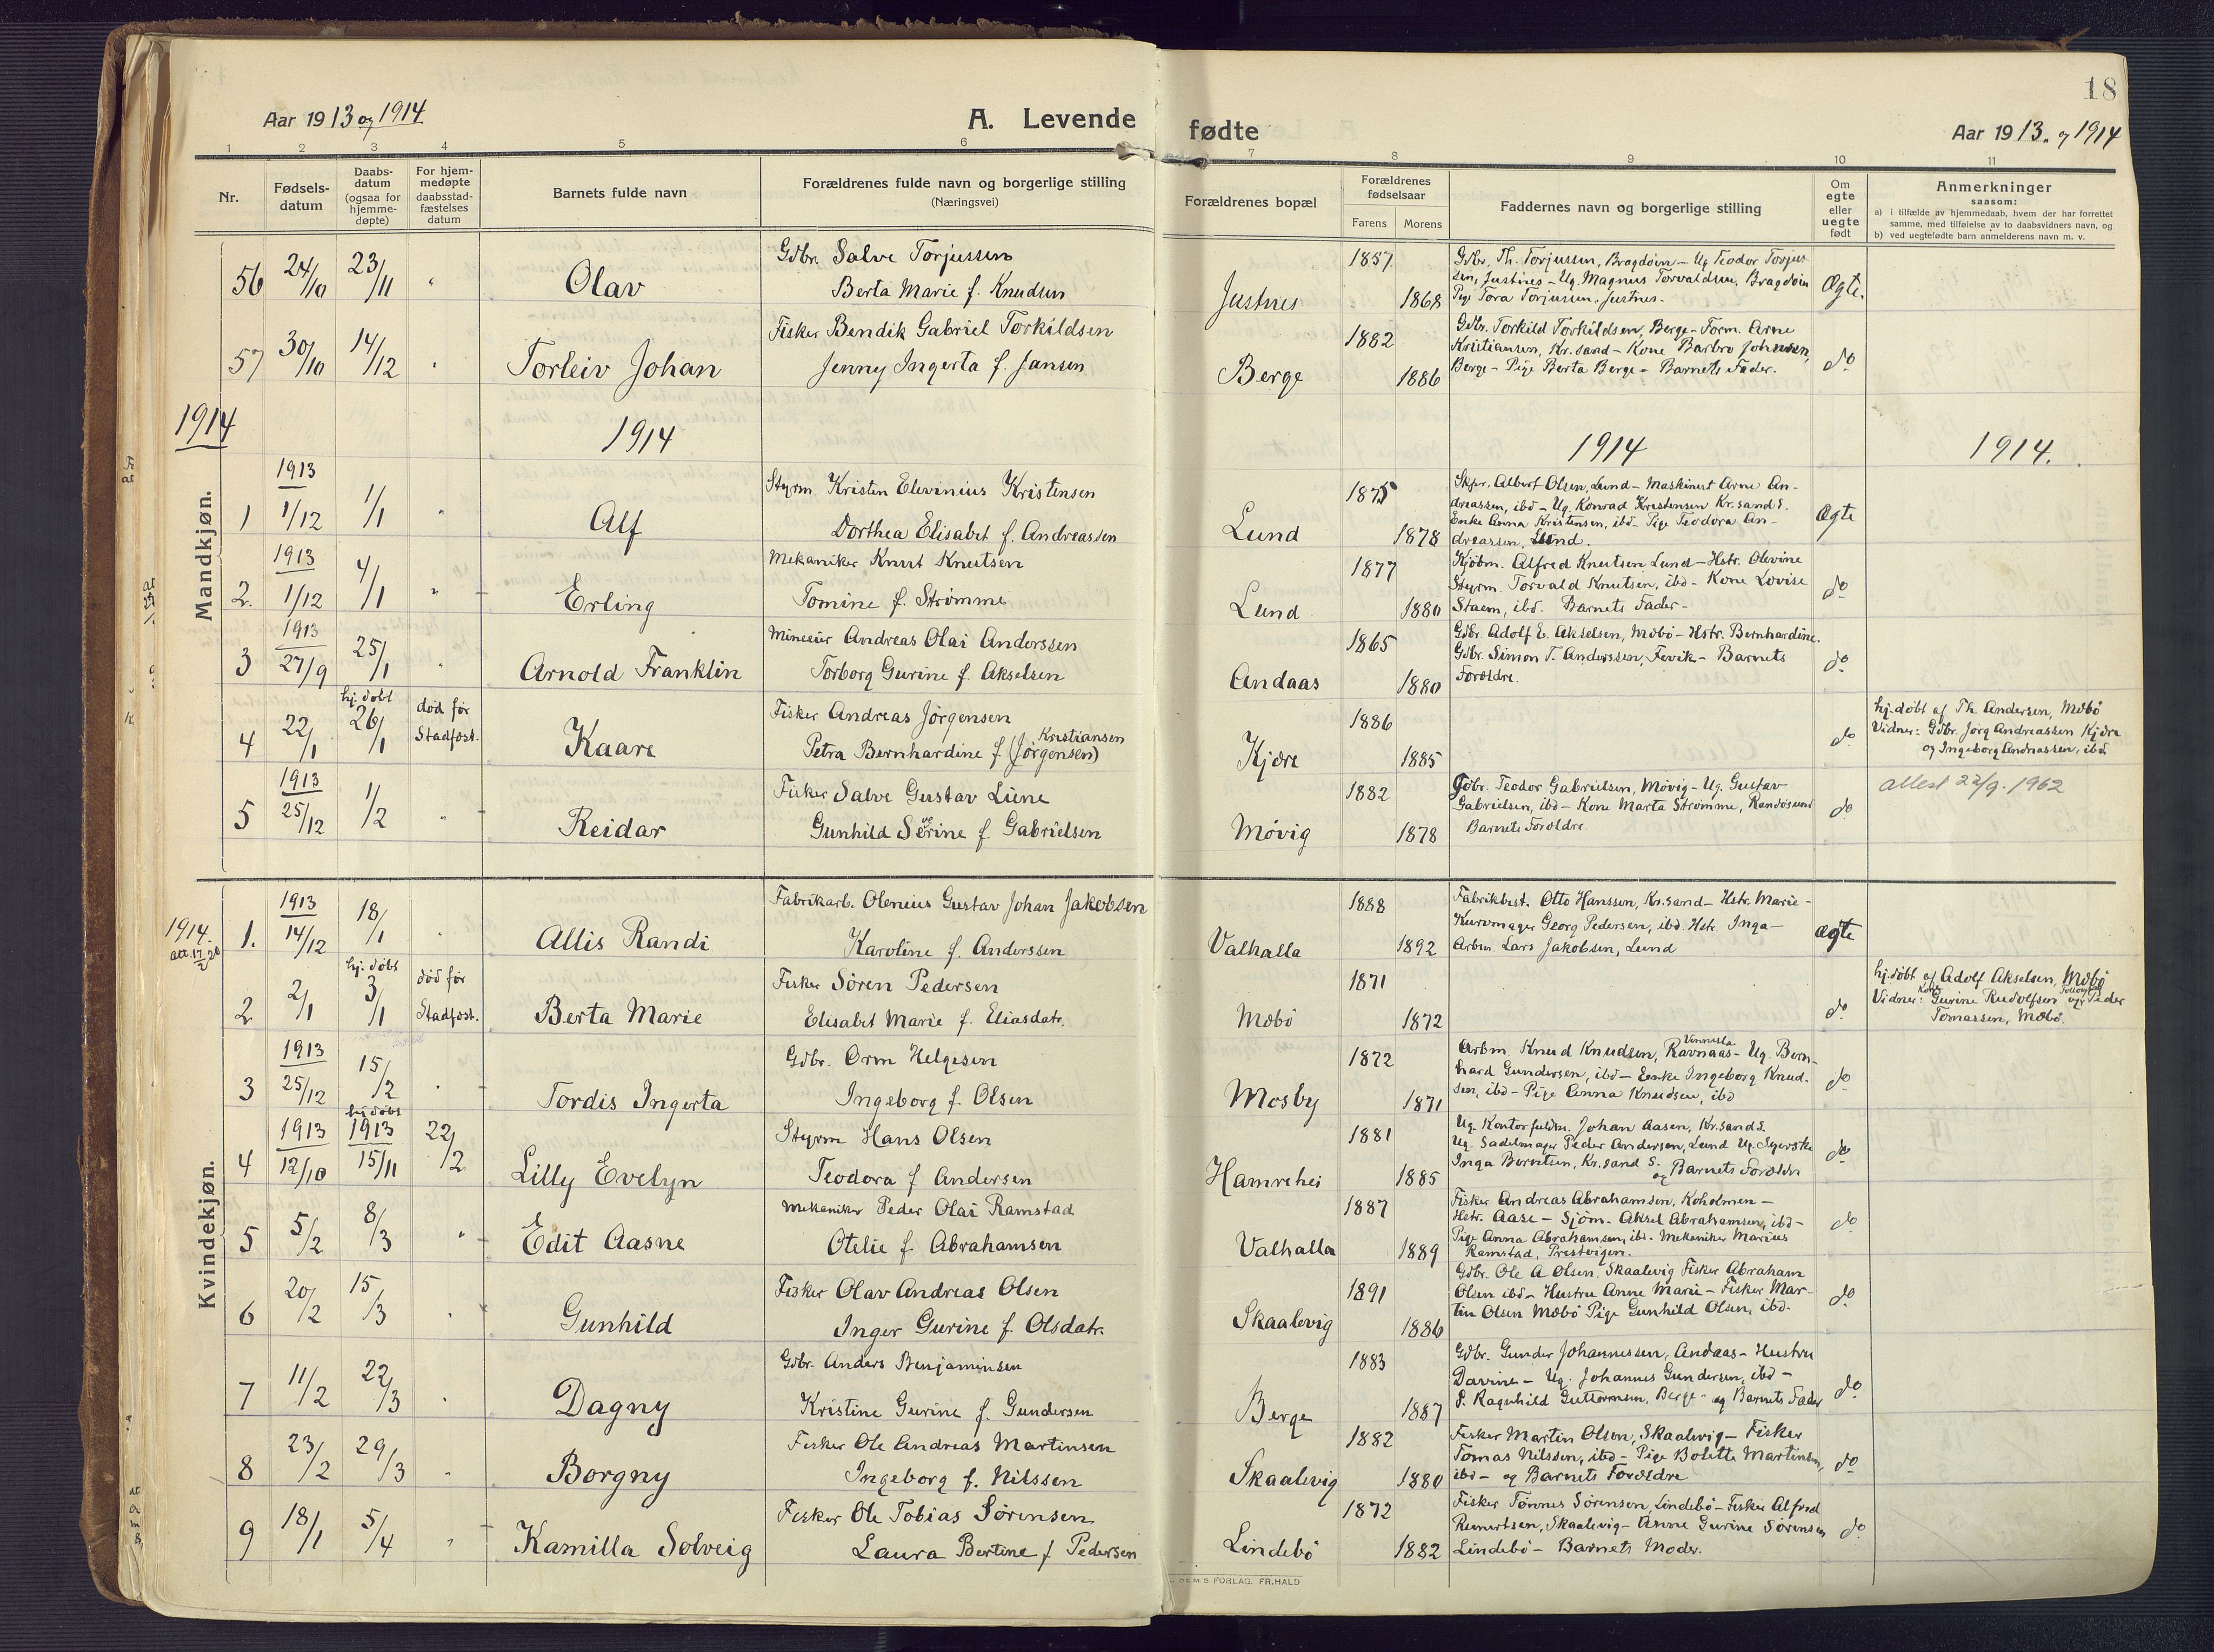 18
Aar 1913 og 1914
A. Levende
fødte
Aar 1913. og 1914
1 2 3 4 5 6 7 8 9 10 11
Nr.
Fødsels-
datum
Daabs-
datum
(ogsaa for
hjemme-
døpte)
For hjem-
medøpte
daabsstad-
fæstelses
datum
Barnets fulde navn
Forældrenes fulde navn og borgerlige stilling
(Næringsvei)
Forældrenes bopæl
Forældrenes
fødselsaar
Farens Morens
Faddernes navn og borgerlige stilling
Om
egte
eller
uegte
født
Anmerkninger
saasom:
a) i tilfælde av hjemmedaab, hvem der har forrettet
samme, med tilføielse av to daabsvidners navn, og
b) ved uegtefødte barn anmelderens navn m. v.
Mandkjøn.
56 24/10 23/11 " Olav
Gdbr. Salve Torjussen
Berta Marie f. Knudsen
Justnes 1857 1868
Gdbr. Th. Torjussen, Bragdøen - Ug. Teodor Torjus
sen, Justnes - Ug. Magnus Torvaldsen, Bragdøen
Pige Tora Torjussen, Justnes.
Ægte.
57 30/10 14/12 " Torleiv Johan
Fisker Bendik Gabriel Torkildsen
Jenny Ingerta f. Jansen
Berge 1882 1886
Gdbr. Torkild Torkildsen, Berge - Form. Arne
Kristiansen, Kr.sand - Kone Barbro Johnsen,
Berge - Pige Berta Berge - Barnets Fader.
do
1914
1914
1914
1914.
1 1913 1/12 1/1 " Alf
Styrm. Kristen Elevinius Kristensen
Dorthea Elisabet f. Andreassen
Lund 1875 1878
Skpr. Albert Olsen, Lund - Maskinist Arne An-
dreassen, ibd - Ug. Konrad Kristensen Kr.sand S.
Enke Anna Kristensen, ibd - Pige Teodora An-
dreassen, Lund.
Ægte
2. 1913 1/12 4/1 " Erling
Mekaniker Knut Knutsen
Tomine f. Strømme
Lund 1877 1880
Kjøbm. Alfred Knutsen, Lund - Hstr. Olevine
Styrm. Torvald Knutsen, ibd - Kone Lovise
Staem, ibd. Barnets Fader -
do
3 1913 27/9 25/1 " Arnold Franklin
Mineeur Andreas Olai Anderssen
Torborg Gurine f. Akselsen
Andaas 1865 1880
Gdbr. Adolf E. Akselsen, Mæbø - Hstr. Bernhardine.
Gdbr. Simon T. Anderssen, Fevik - Barnets
Forældre.
do
4 22/1 hj. døbt 26/1 død før Stadfæst. Kaare
Fisker Andreas Jørgensen
Kristiansen
Petra Bernhardine f. (Jørgensen)
Kjære 1886 1885
do
hj. døbt af Th. Andersen, Mæbø
Vidner: Gdbr. Jørg Andreassen Kjære
og Ingeborg Andreassen, ibd.
5 1913 25/12 1/2 " Reidar
Fisker Salve Gustav Lune
Gunhild Serine f. Gabrielsen
Møvig 1882 1878
Gdbr. Teodor Gabrielsen, Møvig - Ug. Gustav
Gabrielsen, ibd - Kone Marta Strømme, Randøsund
Barnets Forældre
do
attest 22/9. 1962
Kvindekjøn.
1914.
att. 17/2 28
1. 1913 14/12 18/1 " Allis Randi
Fabrikarb. Olenius Gustav Johan Jakobsen
Karoline f. Anderssen
Valhalla 1888 1892
Fabrikbest. Otto Hanssen, Kr.sand - Hstr. Marie -
Kurvmager Georg Pedersen, ibd. Hstr. Inga -
Arbm. Lars Jakobsen, Lund
Ægte
2 2/1 hj. døbt 3/1 død før Stadfæst. Berta Marie
Fisker Søren Pedersen
Elisabet Marie f. Eliasdatr.
Mæbø 1871 1872
do
hj. døbt af Adolf Akselsen, Mæbø
Vidner: Kone Gurine Rudolfsen og Peder
Tomassen, Mæbø.
3 1913 25/12 15/2 " Tordis Ingerta
Gdbr. Orm Helgesen
Ingeborg f. Olsen
Mosby 1872 1871
Vennesla
Arbm. Knud Knudsen, Ravnaas - Ug. Bern-
hard Gundersen, ibd - Enke Ingeborg Knud-
sen, ibd - Pige Anna Knudsen, ibd
do
4 1913 12/10 hj. døbt 1913 15/11 22/2 Lilly Evelyn
Styrm Hans Olsen
Teodora f. Andersen
Hamrehei 1881 1885
Ug. Kontorfuldm. Johan Aasen, Kr.sand S.
Ug. Sadelmager Peder Andersen, Lund Ug. Syerske
Inga Berntsen, Kr.sand S. og Barnets Forældre
do
5 5/2 8/3 " Edit Aasne
Mekaniker Peder Olai Ramstad
Otelie f. Abrahamsen
Valhalla 1887 1889
Fisker Andreas Abrahamsen, Koholmen -
Hstr. Aase - Sjøm. Aksel Abrahamsen, ibd -
Pige Anna Abrahamsen, ibd. Mekaniker Marius
Ramstad, Prestvigen.
do
6 20/2 15/3 " Gunhild
Fisker Olav Andreas Olsen
Inger Gurine f. Olsdatr.
Skaalevig 1891 1886
Gdbr. Ole A Olsen, Skaalevig Fisker Abraham
Olsen ibd - Hustru Anne Marie - Fisker Mar-
tin Olsen Mæbø Pige Gunhild Olsen, ibd.
do
7 11/2 22/3 " Dagny
Gdbr. Anders Benjaminsen
Kristine Gurine f. Gundersen
Berge 1883 1887
Gdbr. Gunder Johannessen, Andaas - Hustru
Davine - Ug. Johannes Gundersen, ibd -
P. Ragnhild Guttormsen, Berge - og Barnets Fader
do
8 23/2 29/3 " Borgny
Fisker Ole Andreas Martinsen
Ingeborg f. Nilssen
Skaalevig 1882 1880
Fisker Martin Olsen, Skaalevig - Fisker
Tomas Nilssen, ibd - Pige Bolette Martinsen,
ibd - og Barnets Forældre
do
9 18/1 5/4 " Kamilla Solveig
Fisker Ole Tobias Sørensen
Laura Bertine f. Pedersen
Lindebø 1872 1882
Fisker Tønnes Sørensen, Lindebø - Fisker Alfred
Reinertsen, Skaalevig - Anne Gurine Sørensen
Lindebø - Barnets Moder.
do
FORLAG. FR.HALD